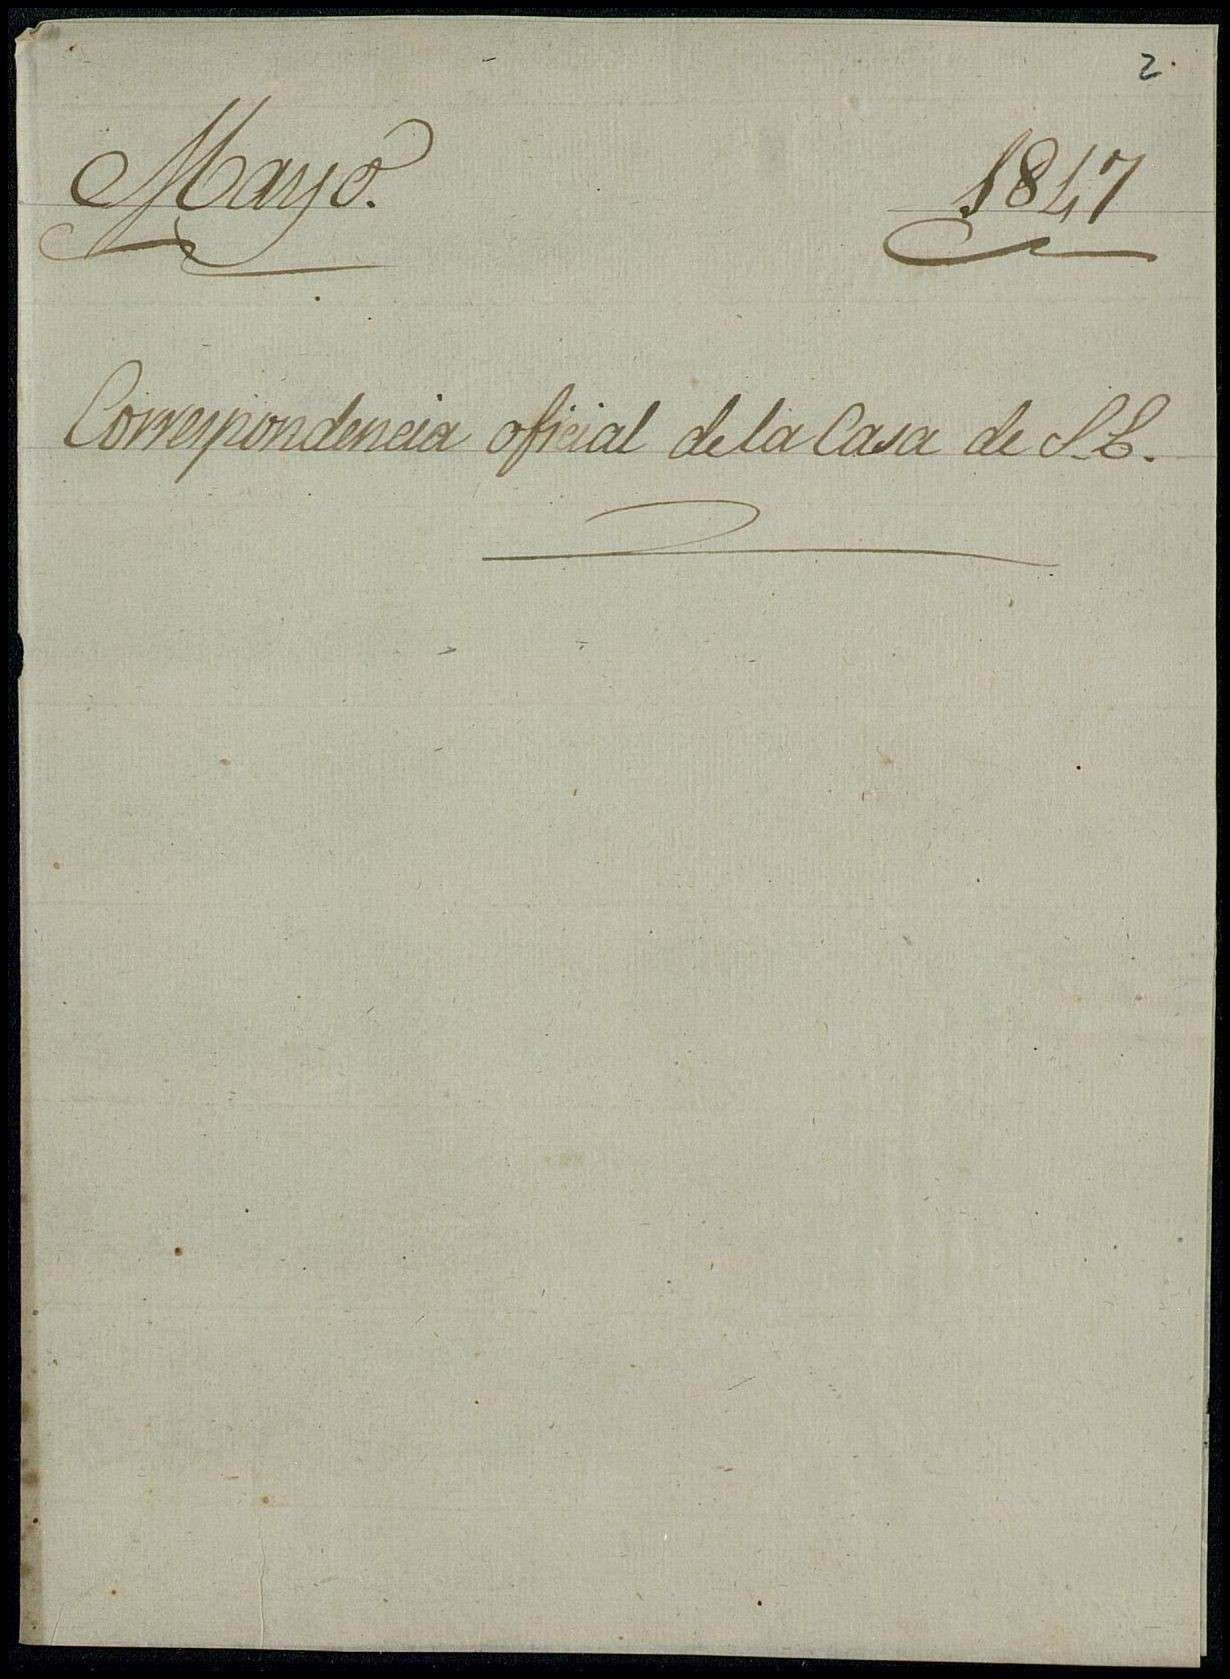 2.
Mayo. 1847
Correspondencia oficial de la Casa de S. L.